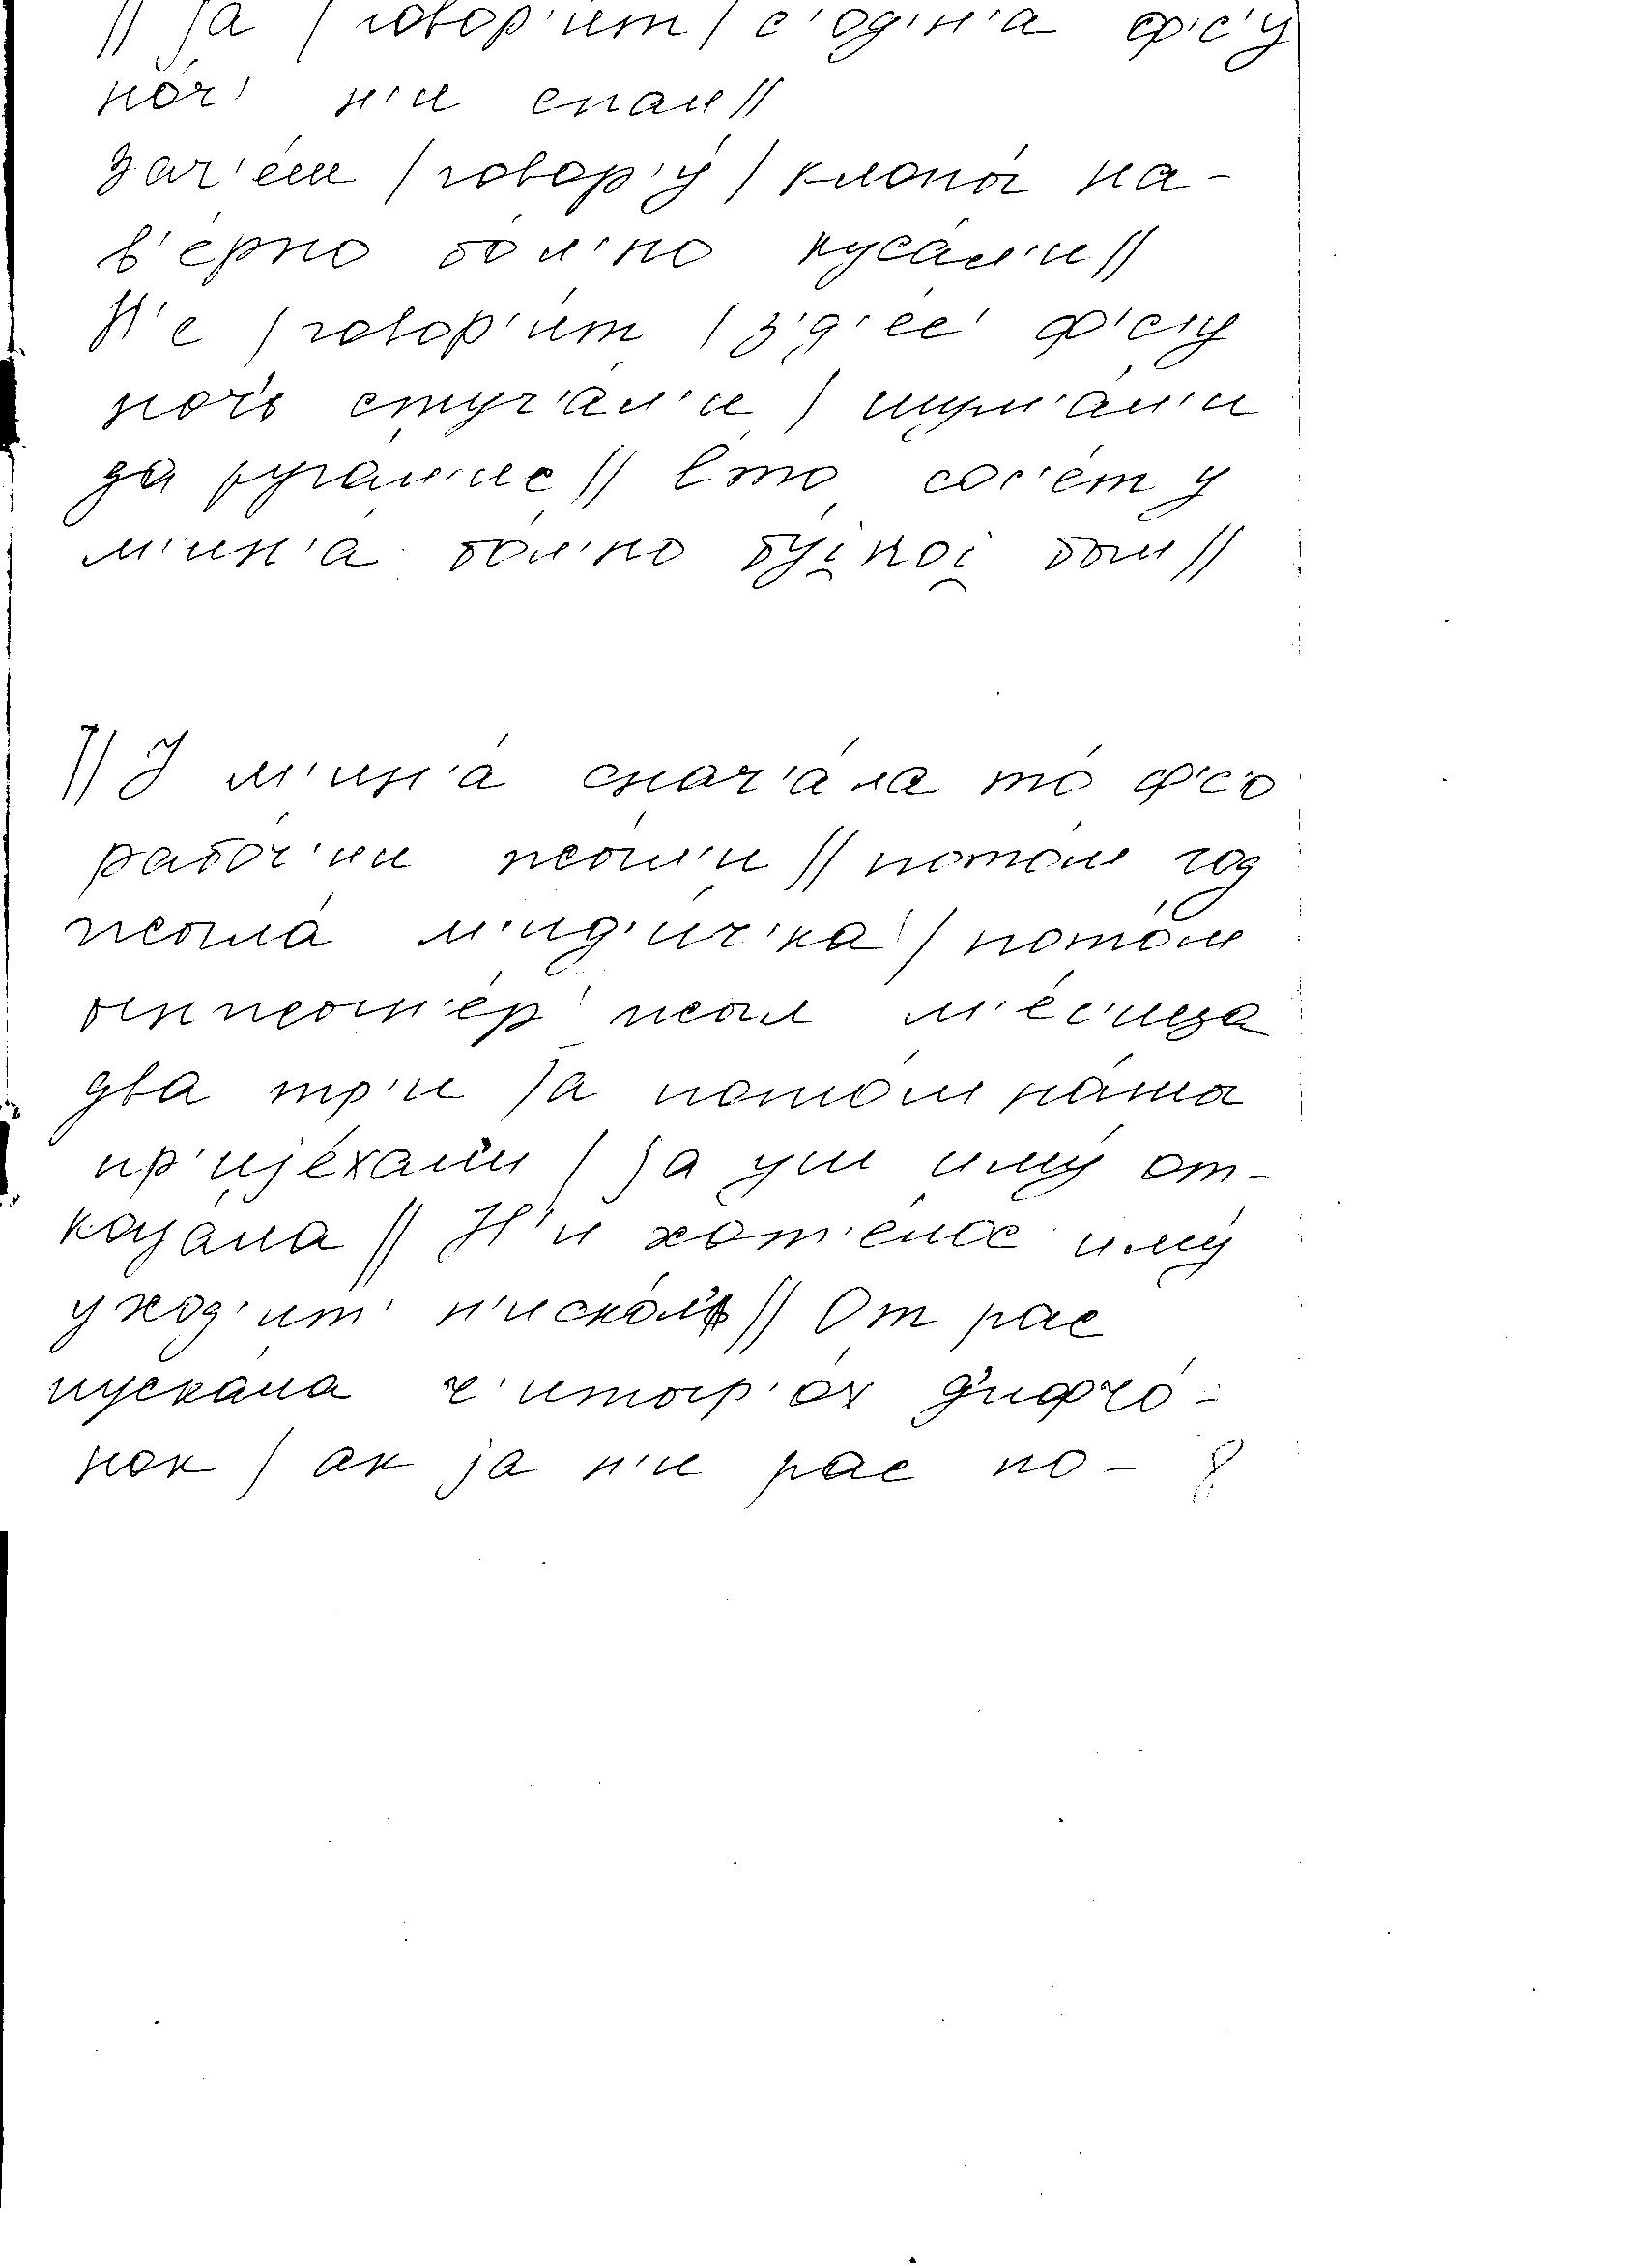 // jа / говор'ит / с'одн'а ф'с'у
ноч' н'и спал //
зач'ем / говор'у́ / клопы́ на-
в'е́рно бо́л'но куса́л'и //
Н'е / говор'и́т / з'д'ес' ф'с'у
ноч'ь стуч'а́л'и / шум'а́л'и
да руга́л'ис // Е́то сос'е́т у
м'ин'а́ бо́л'но бу́iноi был //
// У м'ин'а́ снач'а́ла то́ ф'с'о
рабо́ч'ии жы́л'и // пото́м год
жыла́ м'ид'и́ч'ка / пото́м
ынжын'е́р жыл м'е́с'ица
два тр'и / а пото́м на́шы
пр'иjе́хал'и / jа уш иму́ от-
каза́ла // Н'и хот'е́лос иму́
уход'ит' н'иско́л' // От рас
пуска́ла ч'итыр'о́х д'ифчо́-
нок / ак jа н'и рас по-